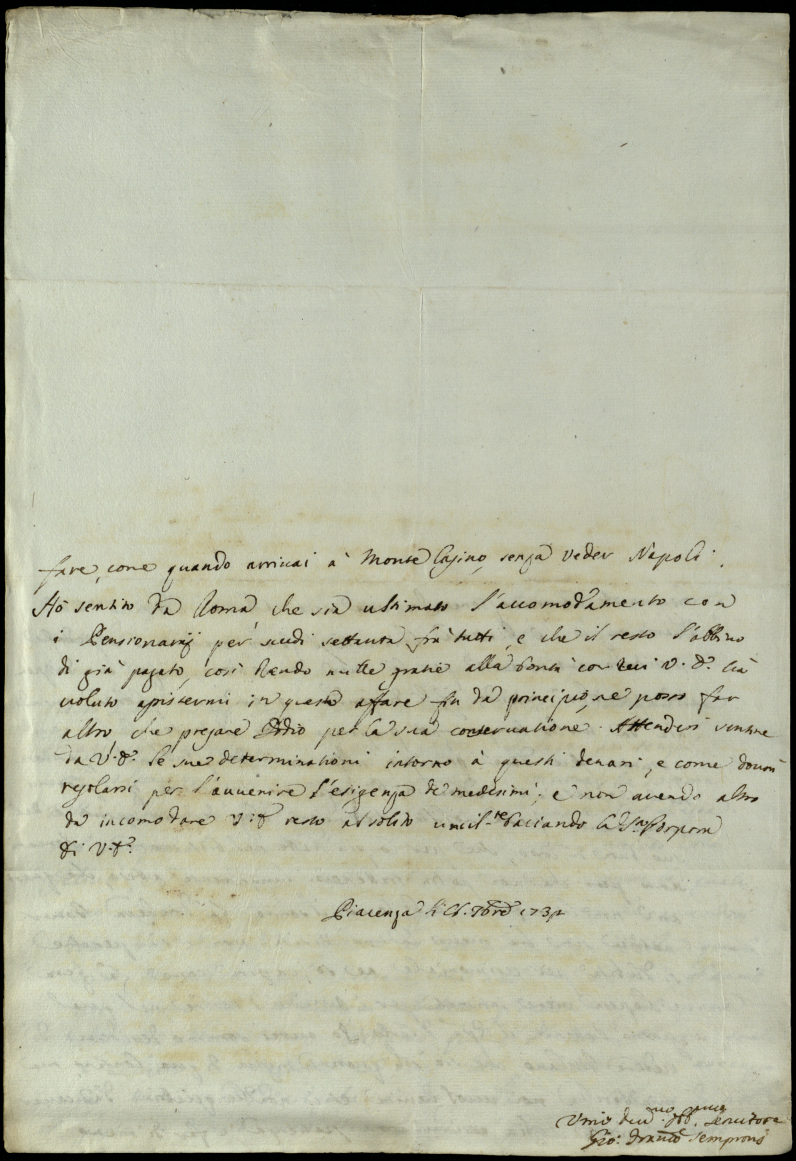 fare, come quando arrivai à Monte Casino, senza veder Napoli.
Hò sentito da Roma che sia ultimato l'accomodamento con
i Pensionarij per scudi settanta frà tutti, e che il resto l'abbino
di già pagato, così rendo mille gratie alla bontà con cui V. E. hà
voluto assistermi in questo affare fin da principio, ne posso far
altro, che pregare Iddio per la sua conservatione. Attenderò sentire
da V. E. le sue determinationi intorno à questi denari, e come dovrà
regolarsi per l'avvenire l'esigenza de medesimi; e non avendo altro
da incomodare V. E. resto al solito umil.te baciando la Porpora
di V. E.
Piacenza li 7bre 1732
Umo Servitore
Gio: Semproni